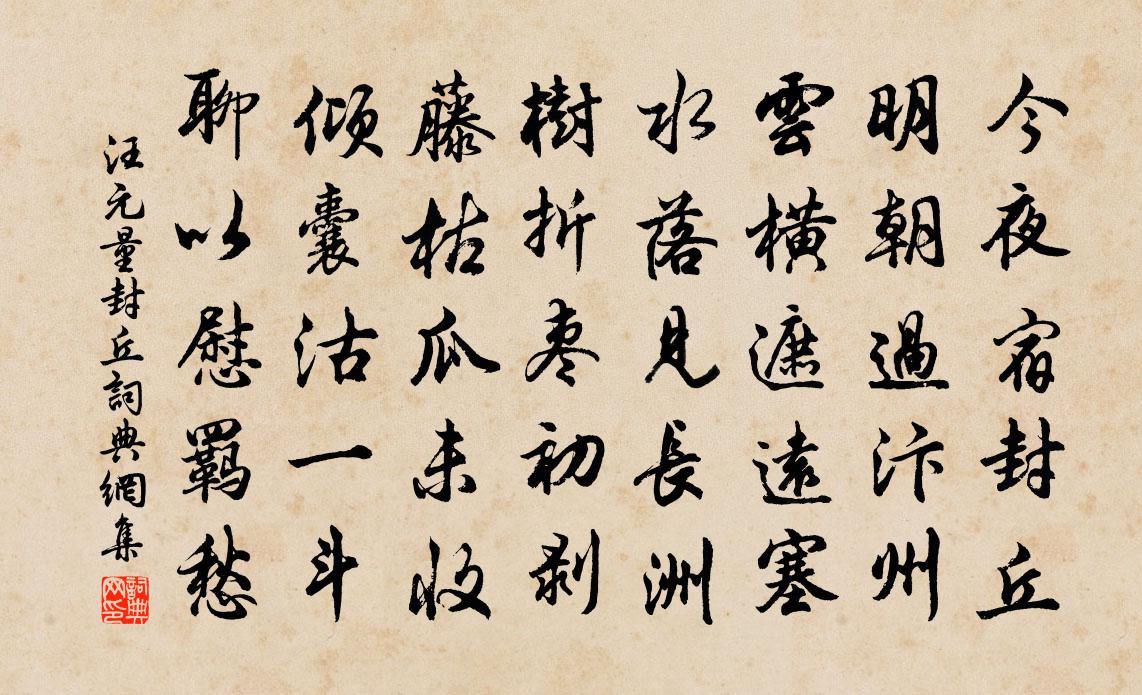 今夜宿封丘
明朝過汴州
雲橫遮遠塞
水落見長洲
樹折棗初剥
藤枯瓜未收
傾囊沽一斗
聊以慰羈愁
汪元量封丘詞典網集
詞典
网印